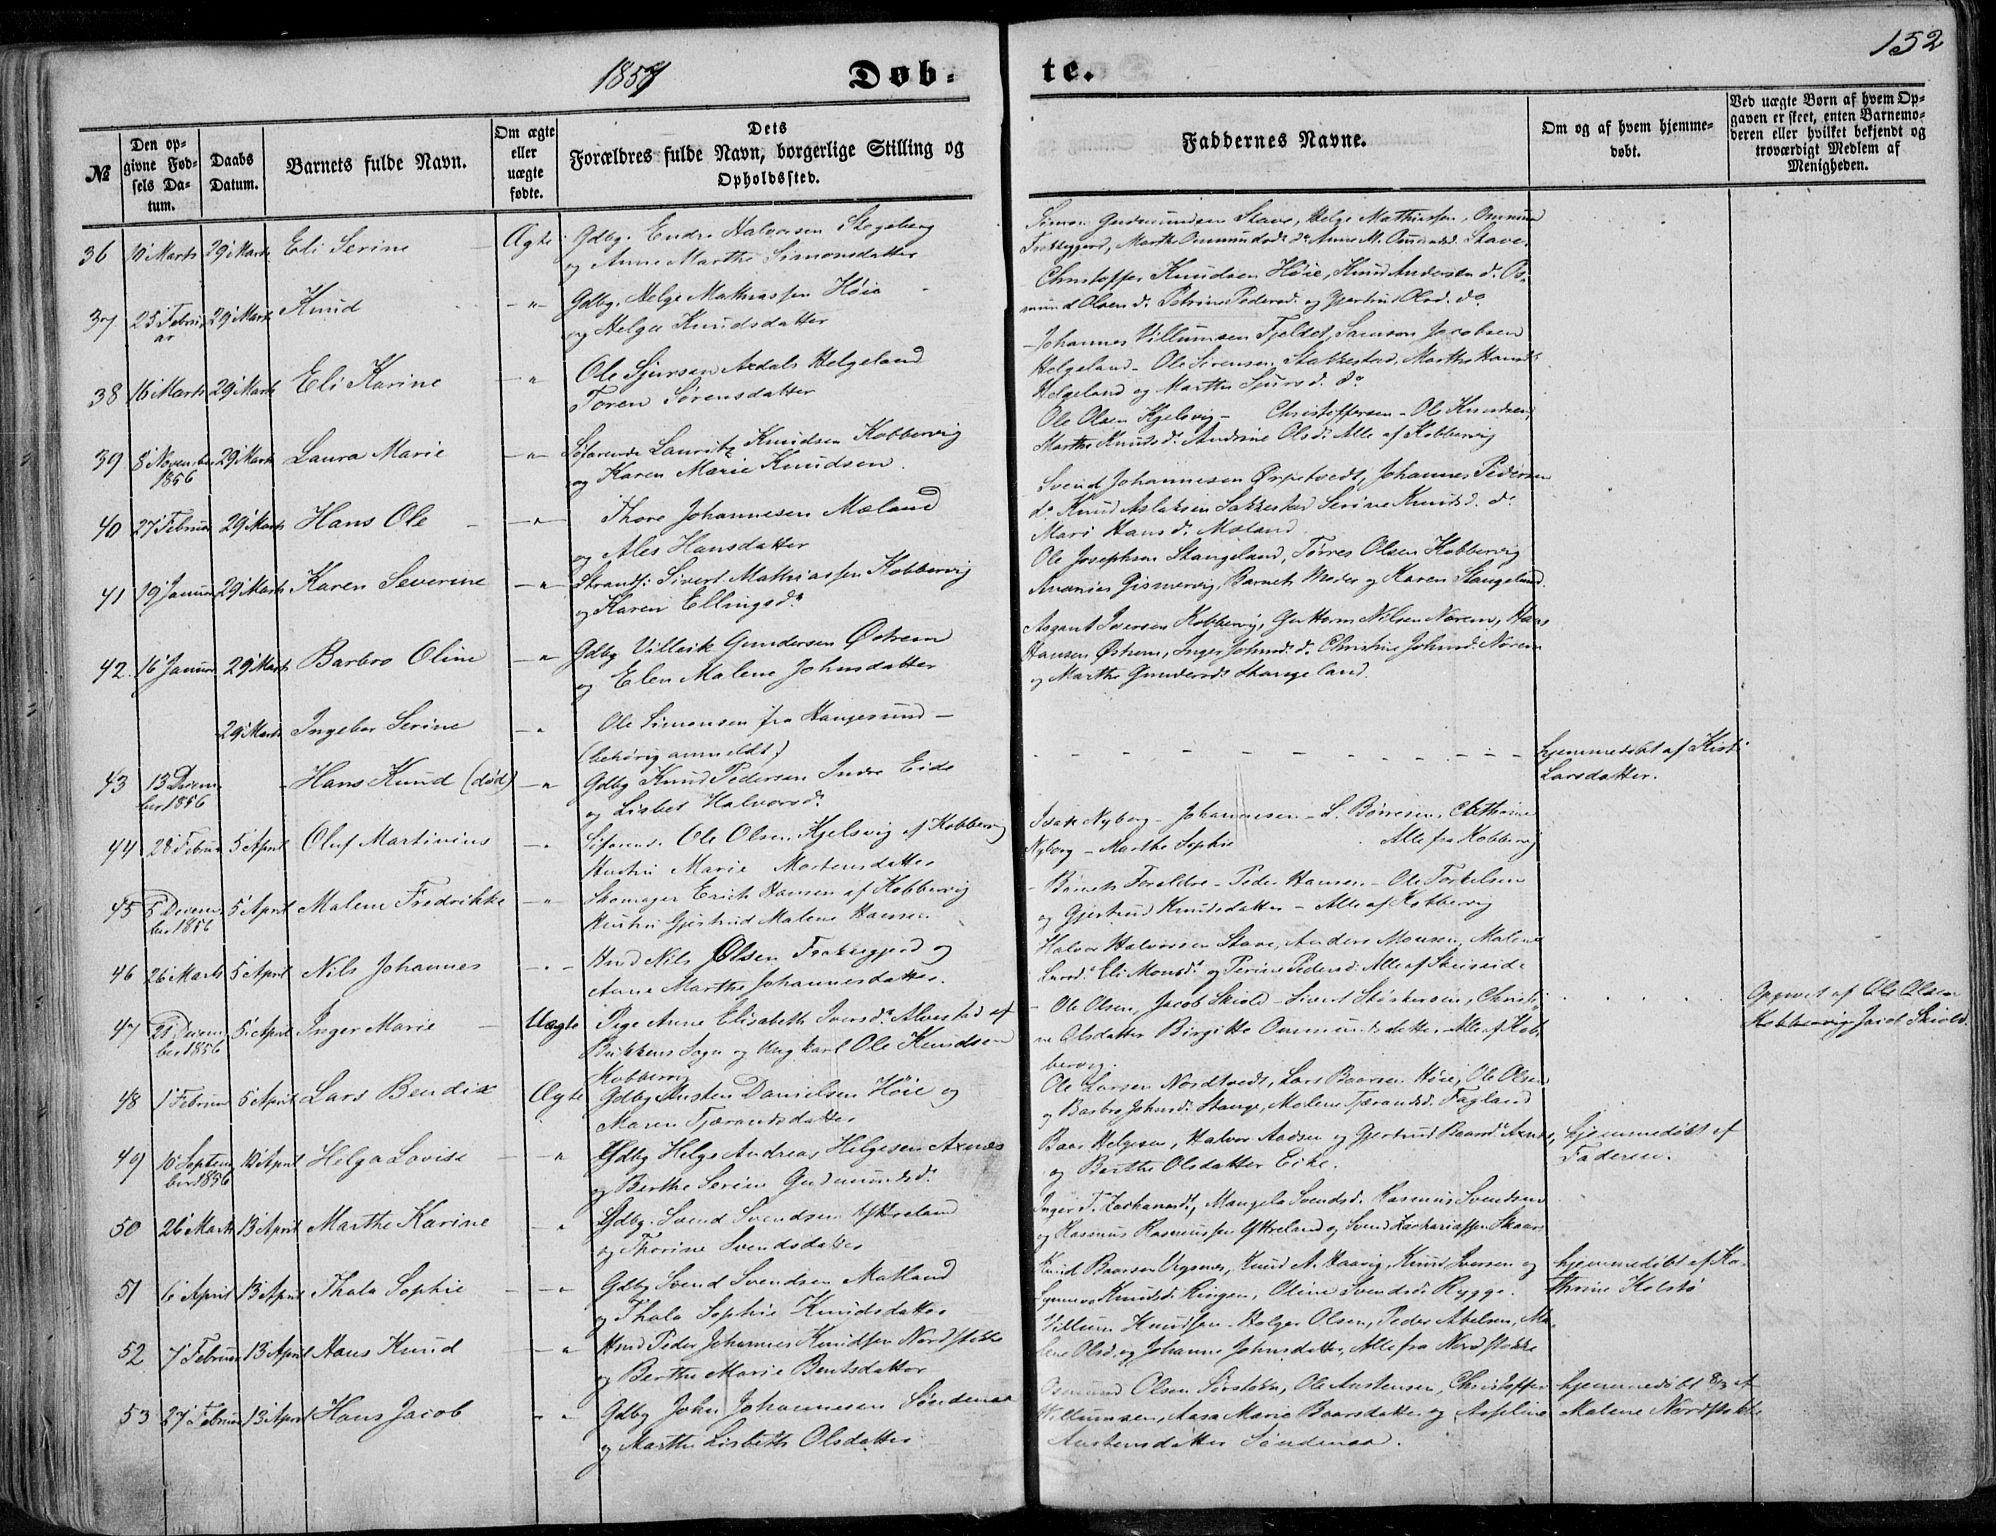 152
1857 Døbte.
№
Den opgivne Fødsels Datum.
Daabs Datum.
Barnets fulde Navn.
Om ægte eller uægte fødte.
Dets Forældres fulde Navn, borgerlige Stilling og Opholdssted.
Faddernes Navne.
Om og af hvem hjemmedøbt.
Ved uægte Børn af hvem Opgaven er skeet, enten Barnemoderen eller hvilket bekjendt og troværdigt Medlem af Menigheden.
36 10 Marts 29 Marts Eli Serine Ægte Gdbg. Endre Halvorsen Stegeberg
og Anne Marthe Simonsdatter
Simon Gudmundsen Stave, Helge Mathiassen, Ommund
Marthe Ommundsdr do Anne M. Omundsd. Stave
37 25 Februar 29 Marts Knud – " – Gdbg. Helge Mathiassen Høie
og Helga Knudsdatter
Christoffer Knudsen Høie, Knud Andersen do. Osmund Olsen do. Petrine Pedersd. og Gjertrud Olsd. do
38 16 Marts 29 Marts Eli Karine – " Ole Sjursen Axdals Helgeland
Toren Sørensdatter
Johannes Villumsen Fjeldet, Samson Jacobsen
Helgeland – Ole Sørensen Stakkestad, Marthe Hansdr
Helgeland og Marthe Sjursd. do
39 8 November 1856 29 Marts Laura Marie – " – Søfarende Lauritz Knudsen Kobbervig
og Karen Marie Knudsen.
Ole Olsen Kjelsvig – Christoffersen – Ole Knudsen,
Marthe Knutsdr. Andrine Olsdr. Alle af Kobbervig
40 27 Februar 29 Marts Hans Ole – " – Thore Johannesen Mæland
og Ales Hansdatter
Svend Johannesen Ørpetvedt, Johannes Pedersen
do. Knud Aslaksen Sakkestad Serine Knudsd. do
Mari Hansdr. Mæland
41 19 Januar 29 Marts Karen Severine – " Strands. Sivert Mathiassen Kobbervig
og Karen Ellingsdr
Ole Josephsen Stangeland, Tørres Olsen Kobbervig
Ananias Gismervig, Barnets Moder og Karen Stangeland.
42. 16 Januar 29 Marts Barbro Oline – " Gdbg Villaik Gundersen Østrem
og Elen Malene Johnsdatter
Asgaut Iversen Kobbervig, Nilsen Norem, Hans
Hansen Østrem, Inger Johnsdr. Christine Johnsd. Norem
og Marthe Gundersdr Stangeland.
29 Marts Ingebor Serine – " Ole Simonsen fra Haugesund –
(behørig anmeldt)
43 13 December 1856 Hans Knud (død) – " Gdbg Knud Pedersen Indre Eide
og Lisbet Halvorsdr
hjemmedøbt af Kisti
Larsdatter.
44 28 Februar 5 April Oluf Martinius – " Søfarende Ole Olsen Kjelsvig af Kobbervig
Hustru Marie Mortensdatter
Isak Nyborg – Johannesen – L. Børresen, Cathrine
Nyborg – Marthe Sophie Alle fra Kobbervig
45 5 December 1856 5 April Malene Fredrikke – " Skomager Erich Hansen af Kobbervig
Hustru Gjertrud Malene Hansen
– Barnets Forældre – Peder Hansen – Ole Torkelsen
og Gjertrud Knudsdatter – Alle af Kobbervig
46 26 Marts 5 April Nils Johannes Hmd Nils Olsen Frakkegjerd og
Anne Marthe Johannesdatter.
Halvor Halvorsen Stave, Anders Monsen, Malene
Larsdr Eli Monsdr og Perine Pedersd. Alle af
47 21 December 1856 5 April Inger Marie Uægte Pige Anne Elisabeth Iversdr Alvestad af
Bukkens Sogn og Ungkarl Ole Knudsen
Kobbervig
– Ole Olsen, Jacob Skiold – Sivert Størkersen, Christine Olsdatter Birgitte Ommundsdatter, Alle af Kobbervig.
Opgivet af Ole Olsen
Kobbervig Jacob Skiold.
48 1 Februar 5 April Lars Bendix Ægte Gdbg Austen Danielsen Høie og
Maren Tjærandsdatter
Ole Larsen Nordtvedt, Lars Baarsen Høie, Ole Olsen
og Barbro Johnsdr. Stange, Malene Tjærandsd. Fagland
49 10 September 1856 12 April Helga Lovise – " Gdbg Helge Andreas Helgesen Axnæs
og Berthe Serine Gudmundsdr
Baar Helgesen, Halvor Aadsen og Gjertrud Baarsdr Axnes,
og Berthe Olsdatter Eike.
hjemmedøbt af
Faderen.
50 26 Marts 13 April Marthe Karine – " Gdbg. Svend Svendsen Ytreland
og Thorine Svendsdatter
Inger T. Zachariasdr, Mangela Svendsd. Rasmus Svendsen
og Rasmus Rasmussen Ytreland og Svend Zachariassen Skaar
51 6 April 13 April Thala Sophie – " Gdbg Svend Svendsen Matland
og Thala Sophie Knudsdatter
Knud Baarsen Vegsnes, Knud A. Haavig, Knud Iversen og
Synneva Knudsdr. Ringen, Oline Svendsdr Rygge.
hjemmedøbt af Kathrine Kolstø
52 7 Februar 13 April Hans Knud – " Hmd Peder Johannes Knudsen Nordstokke
og Berthe Marie Bentsdatter
Villum Knudsen Holger Olsen, Peder Abelsen, Malene Olsd. og Johanne Johnsdatter, Alle fra Nordstokke
53 27 Februar 13 April Hans Jacob – " Gdbg John Johannesen Søndenaa
og Marthe Lisbeth Olsdatter
Osmund Olsen Sørstokke, Ole Austensen, Christoffer
Villumsen, Aasa Marie Baarsdatter og Aaseline
Austensdatter Søndenaa.
hjemmedøbt af
Malene Nordstokke